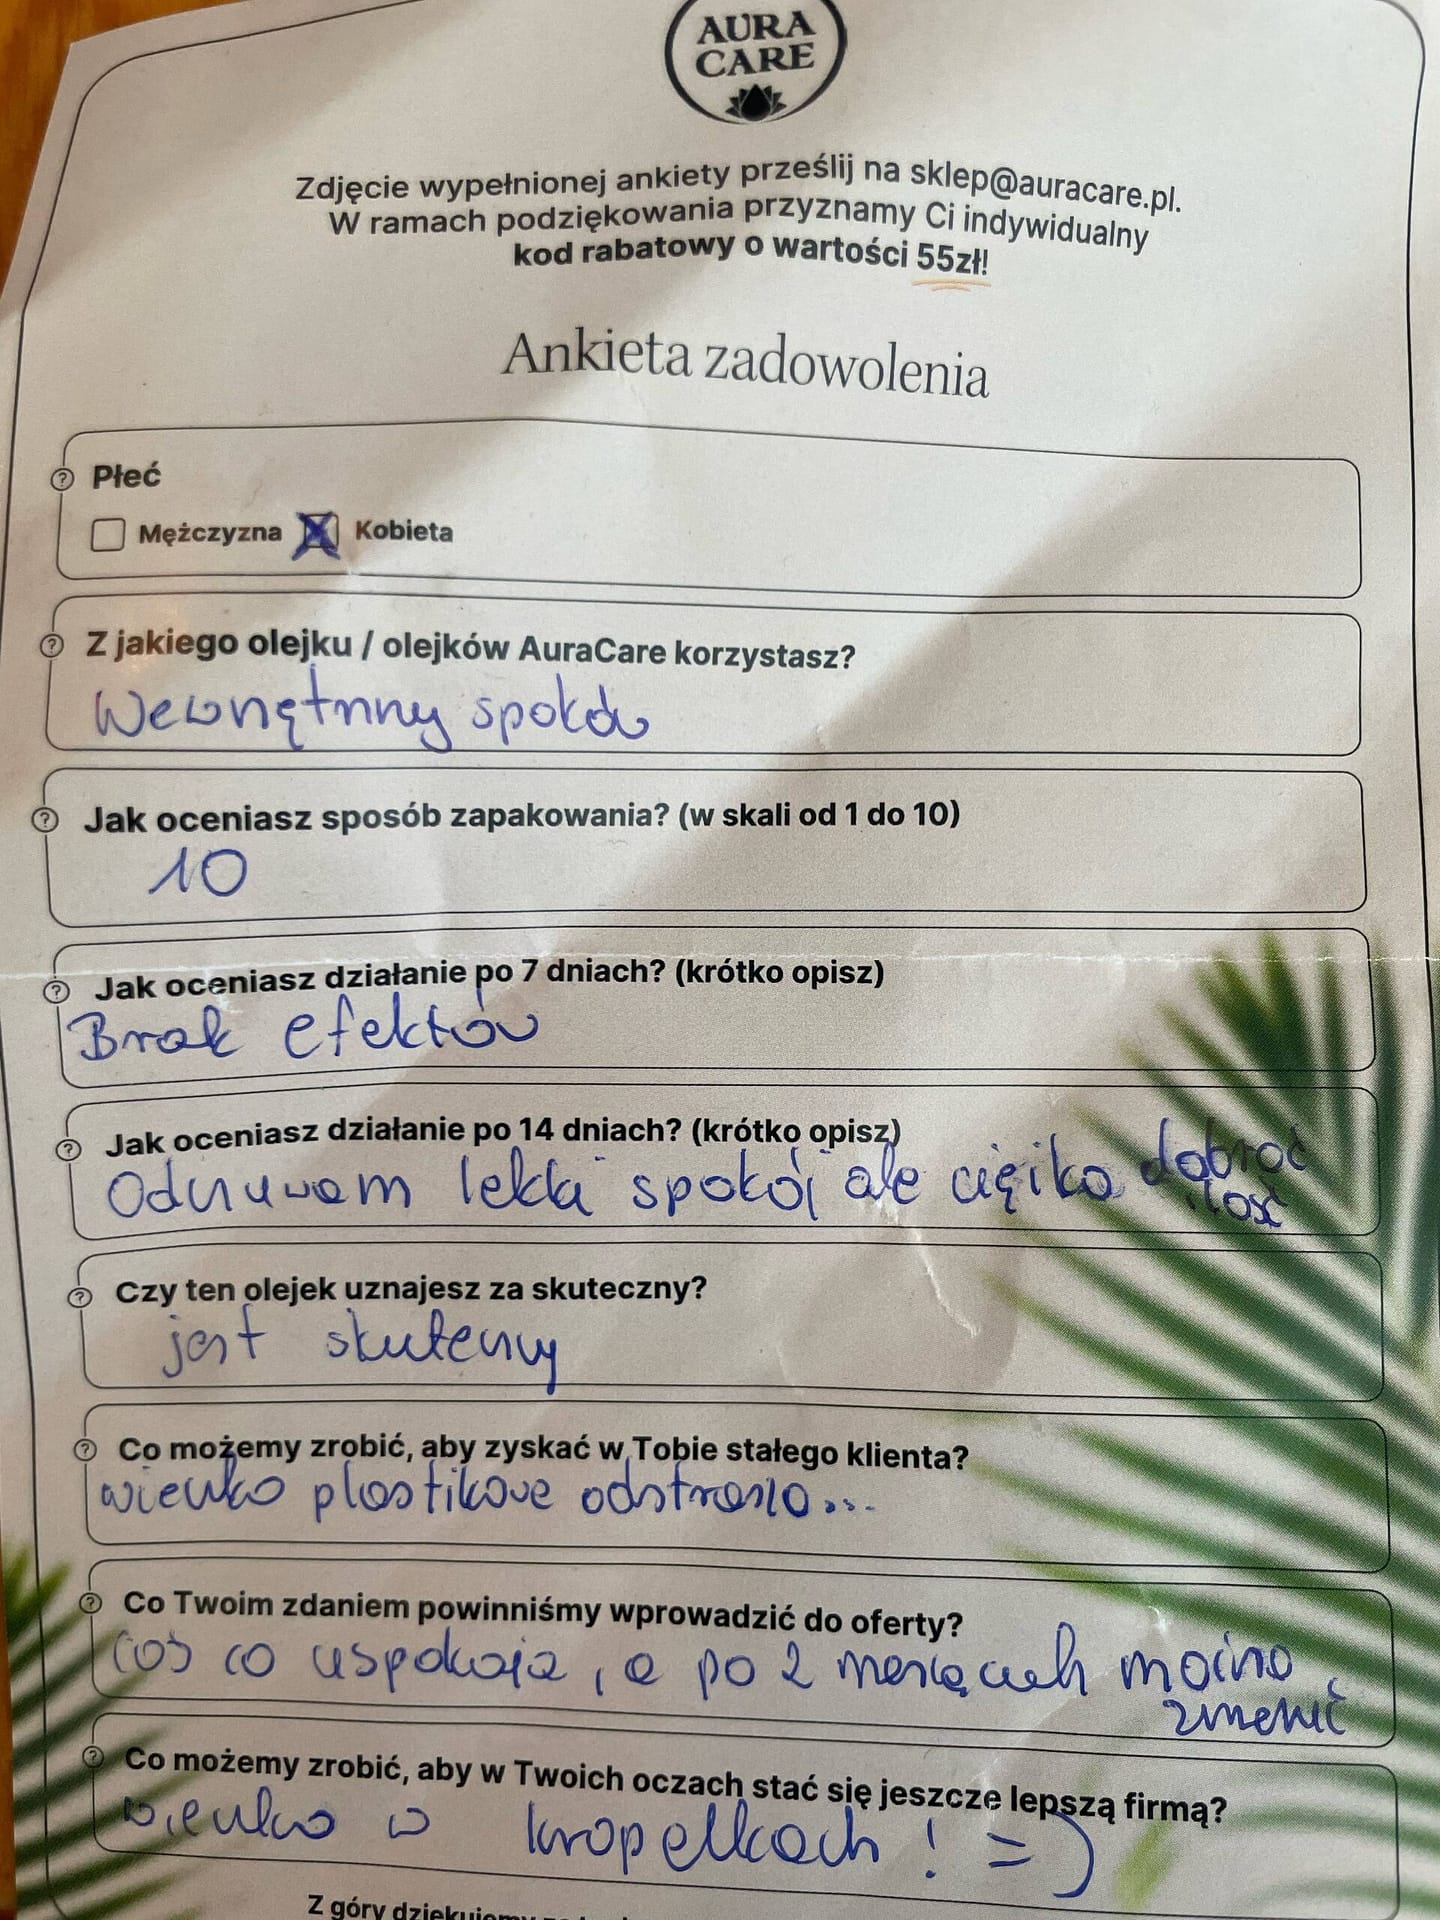 AURA
CARE
Zdjęcie wypełnionej ankiety prześlij na sklep@auracare.pl.
W ramach podziękowania przyznamy Ci indywidualny
kod rabatowy o wartości 55zł!
Ankieta zadowolenia
Płeć
Mężczyzna Kobieta
Z jakiego olejku / olejków AuraCare korzystasz?
Wewnętrzny spokój
Jak oceniasz sposób zapakowania? (w skali od 1 do 10)
10
Jak oceniasz działanie po 7 dniach? (krótko opisz)
Brak efektów
Jak oceniasz działanie po 14 dniach? (krótko opisz)
Odczuwam lekki spokój ale ciężko dobrać
ilość
Czy ten olejek uznajesz za skuteczny?
jest skuteczny
Co możemy zrobić, aby zyskać w Tobie stałego klienta?
wieczko plastikowe odstrasza...
Co Twoim zdaniem powinniśmy wprowadzić do oferty?
coś co uspokaja, a po 2 miesiącach można
zmienić
Co możemy zrobić, aby w Twoich oczach stać się jeszcze lepszą firmą?
wieczko w kropelkach! =)
Z góry dziękujemy